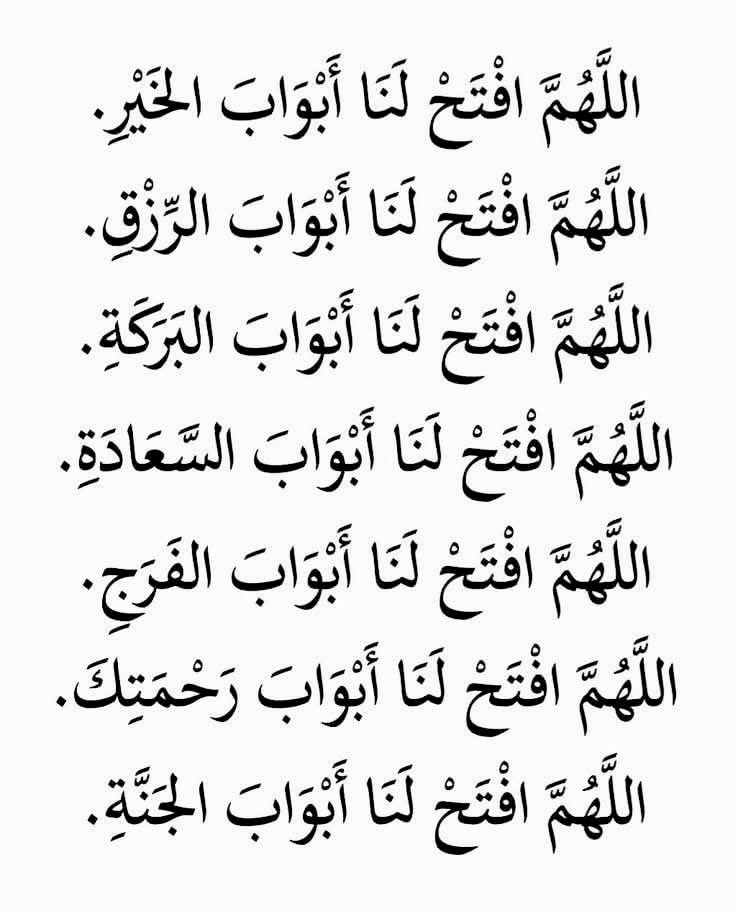 اللَّهُمَّ افْتَحْ لَنَا أَبْوَابَ الخَيْرِ.
اللَّهُمَّ افْتَحْ لَنَا أَبْوَابَ الرِّزْقِ.
اللَّهُمَّ افْتَحْ لَنَا أَبْوَابَ البَرَكَةِ.
اللَّهُمَّ افْتَحْ لَنَا أَبْوَابَ السَّعَادَةِ.
اللَّهُمَّ افْتَحْ لَنَا أَبْوَابَ الفَرَجِ.
اللَّهُمَّ افْتَحْ لَنَا أَبْوَابَ رَحْمَتِكَ.
اللَّهُمَّ افْتَحْ لَنَا أَبْوَابَ الجَنَّةِ.